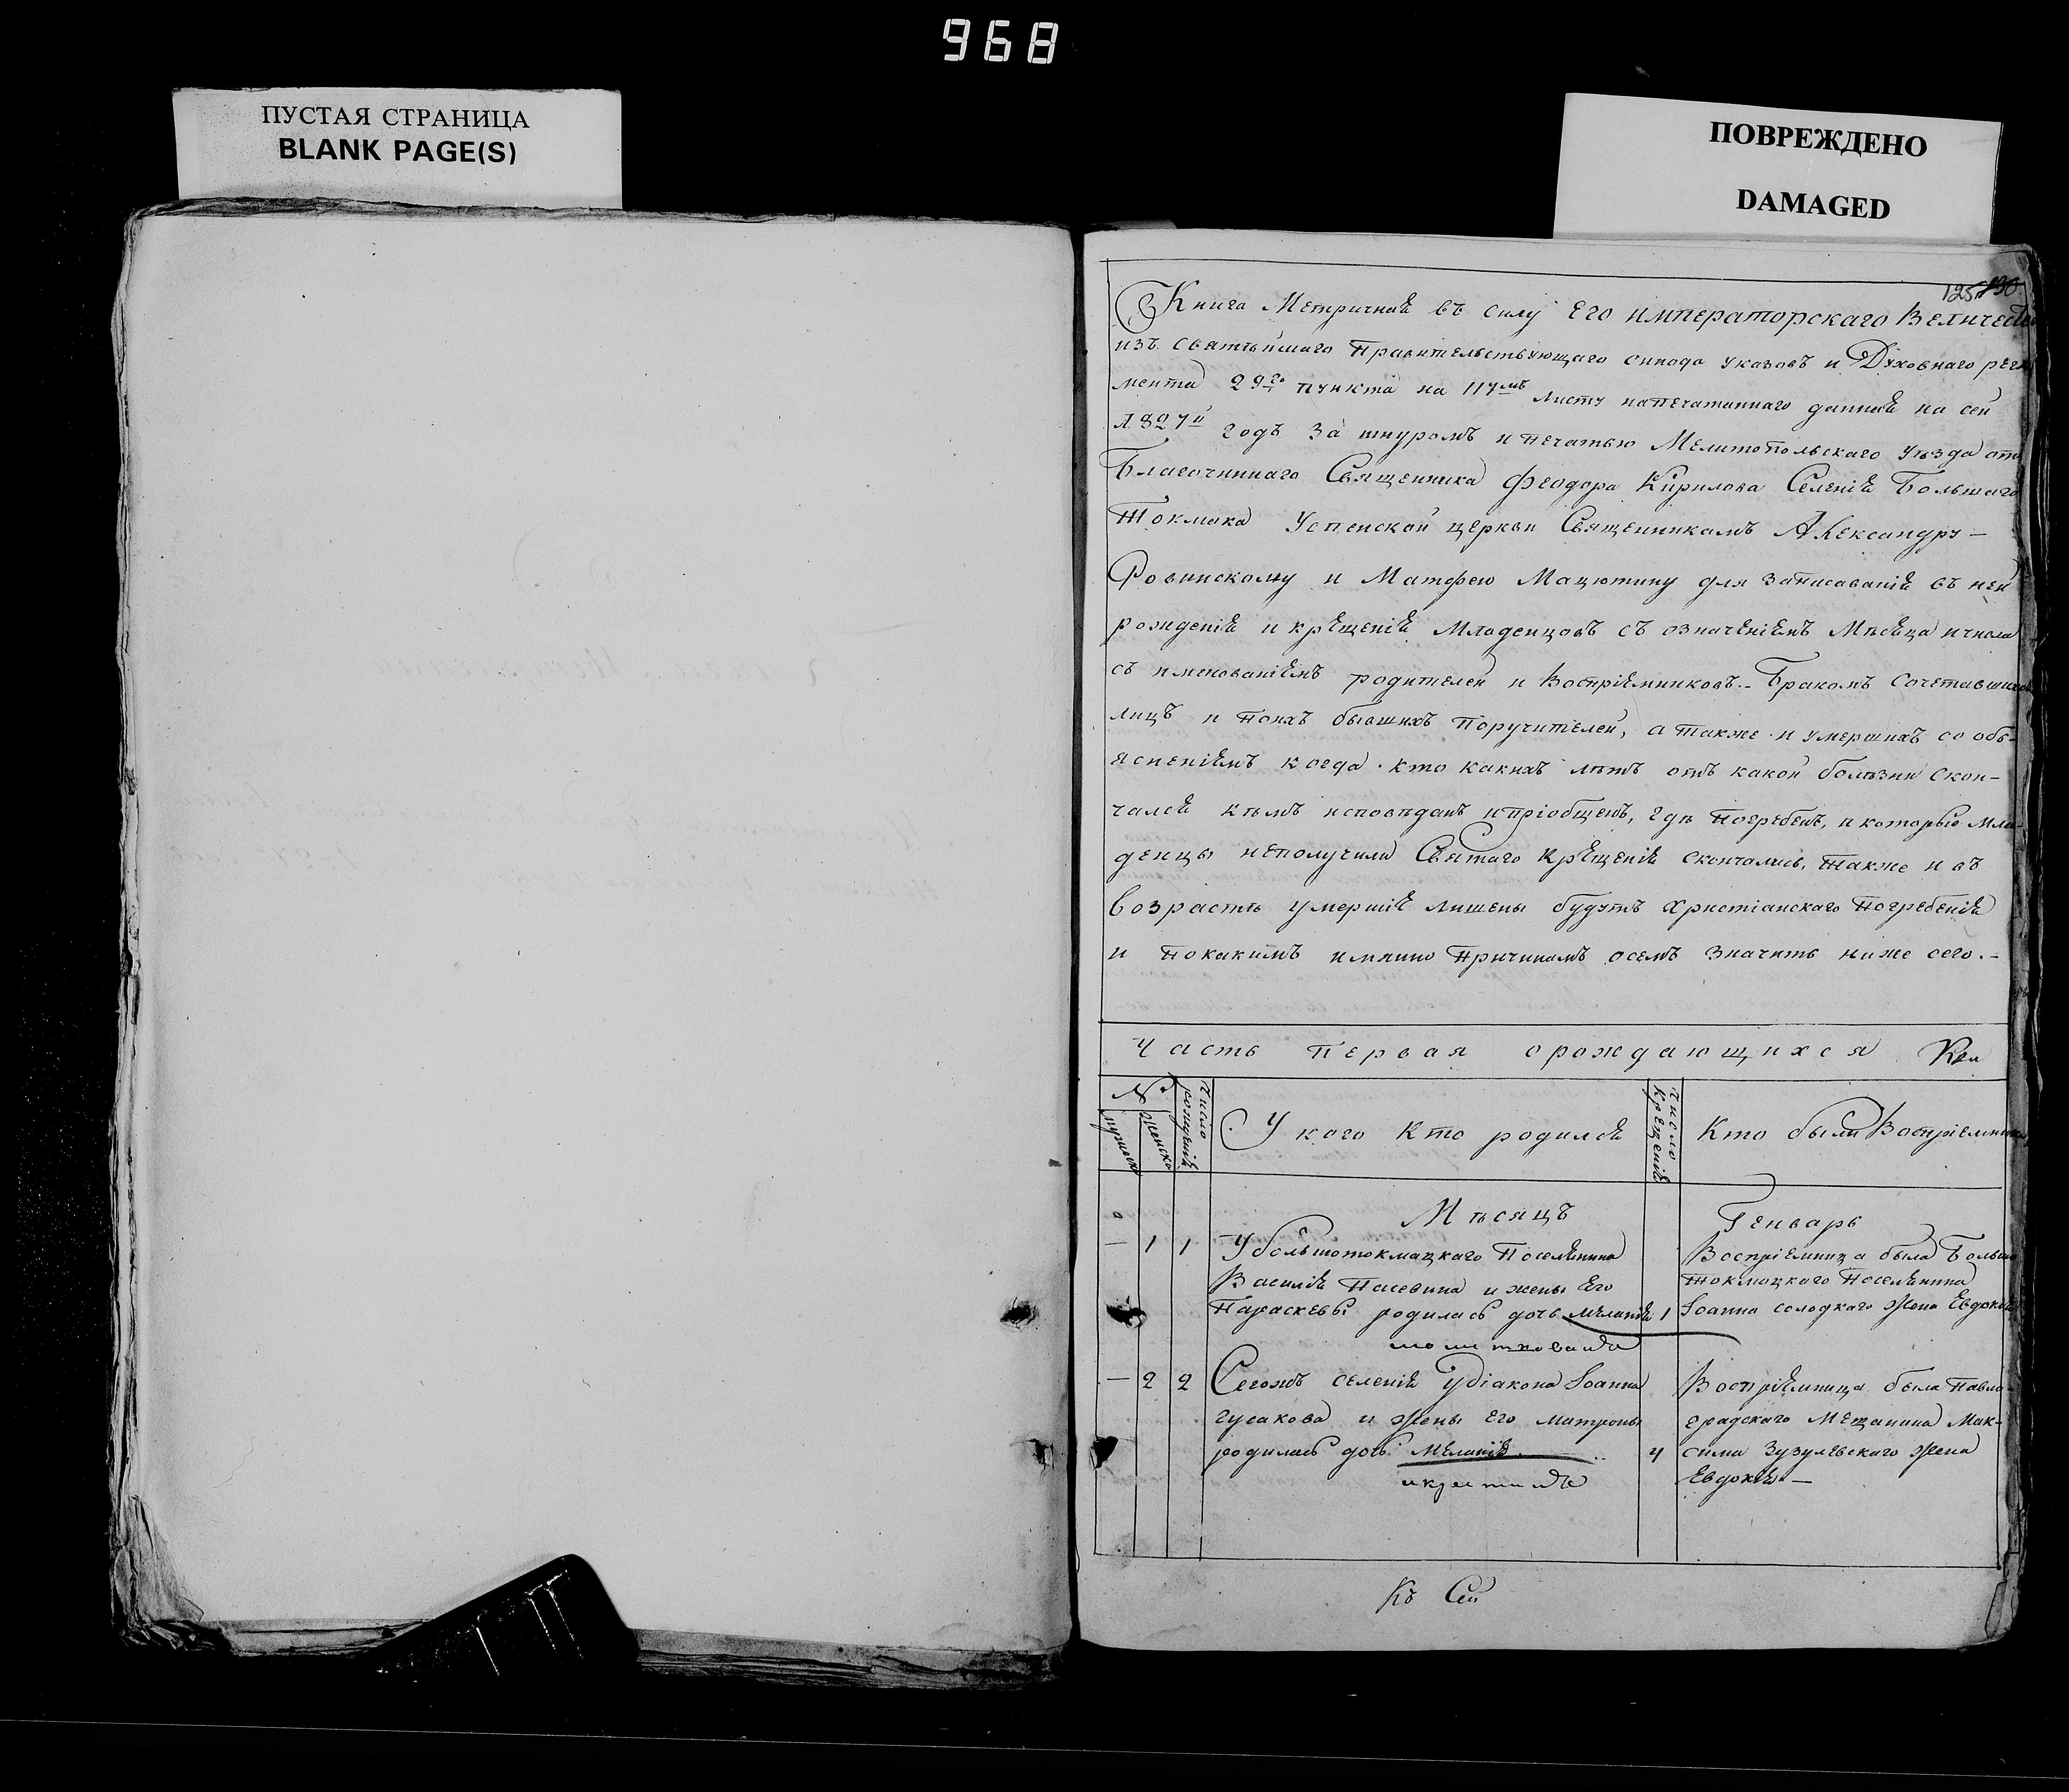 968
ПУСТАЯ СТРАНИЦА
BLANK PAGE(S)
ПОВРЕЖДЕНО
DAMAGED
125 130
Книга Метричная въ силу Его императорскаго Величест
изъ святѣйшаго Правительствующаго синода указовъ и Духовнаго регл
мента 29го пункта на 117мъ листу напечатаннаго данная на сей
1827й годъ за шнуромъ и печатью Мелитопольскаго уѣзда отъ
Благочиннаго Священника Феодора Кирилова Селенія Большаго
Токмака Успенской церкви Священникамъ Александру –
Ровинскому и Матфею Мацютину для записаванія въ ней
рожденія и крещенія Младенцовъ съ означеніемъ Мѣсяца и числа
съ именованіемъ родителей и Воспріемниковъ.. Бракомъ сочетавшихся
лицъ и поихъ бывшихъ поручителей, а также и умершихъ со объ-
ясненіемъ когда. кто какихъ лѣтъ отъ какой болѣзни скон-
чался кѣмъ исповѣданъ и пріобщенъ, гдѣ погребенъ, и которые мла-
денцы неполучили Святаго Крещенія скончались, также и въ
возрастѣ умершіе лишены будутъ христіанскаго погребенія
и покакимъ имянно причинамъ осемъ значитъ ниже сего.–
Часть первая ораждающихся
№
мужеска
женска
число рожденія
У кого кто родился
число крещенія
Кто были Воспріемники
Мѣсяцъ Генварь
– 1 1 У большотокмацкаго Поселянина
Василія и жены Его
Параскевы родилась дочь Меланія 1
молитвовалъ
Воспріемница была Больше
токмацкаго Поселянина
Іоанна солодкаго жена Евдокія
– 2 2 Сегожъ селенія Удіакона Іоанна
гусакова и жены Его матроны
родилась дочь Меланія 4
и крестилъ
Воспріемница была Павло-
градскаго Мещанина Мак-
сима Зузулевскаго жена
Евдокія. –
Къ Сей